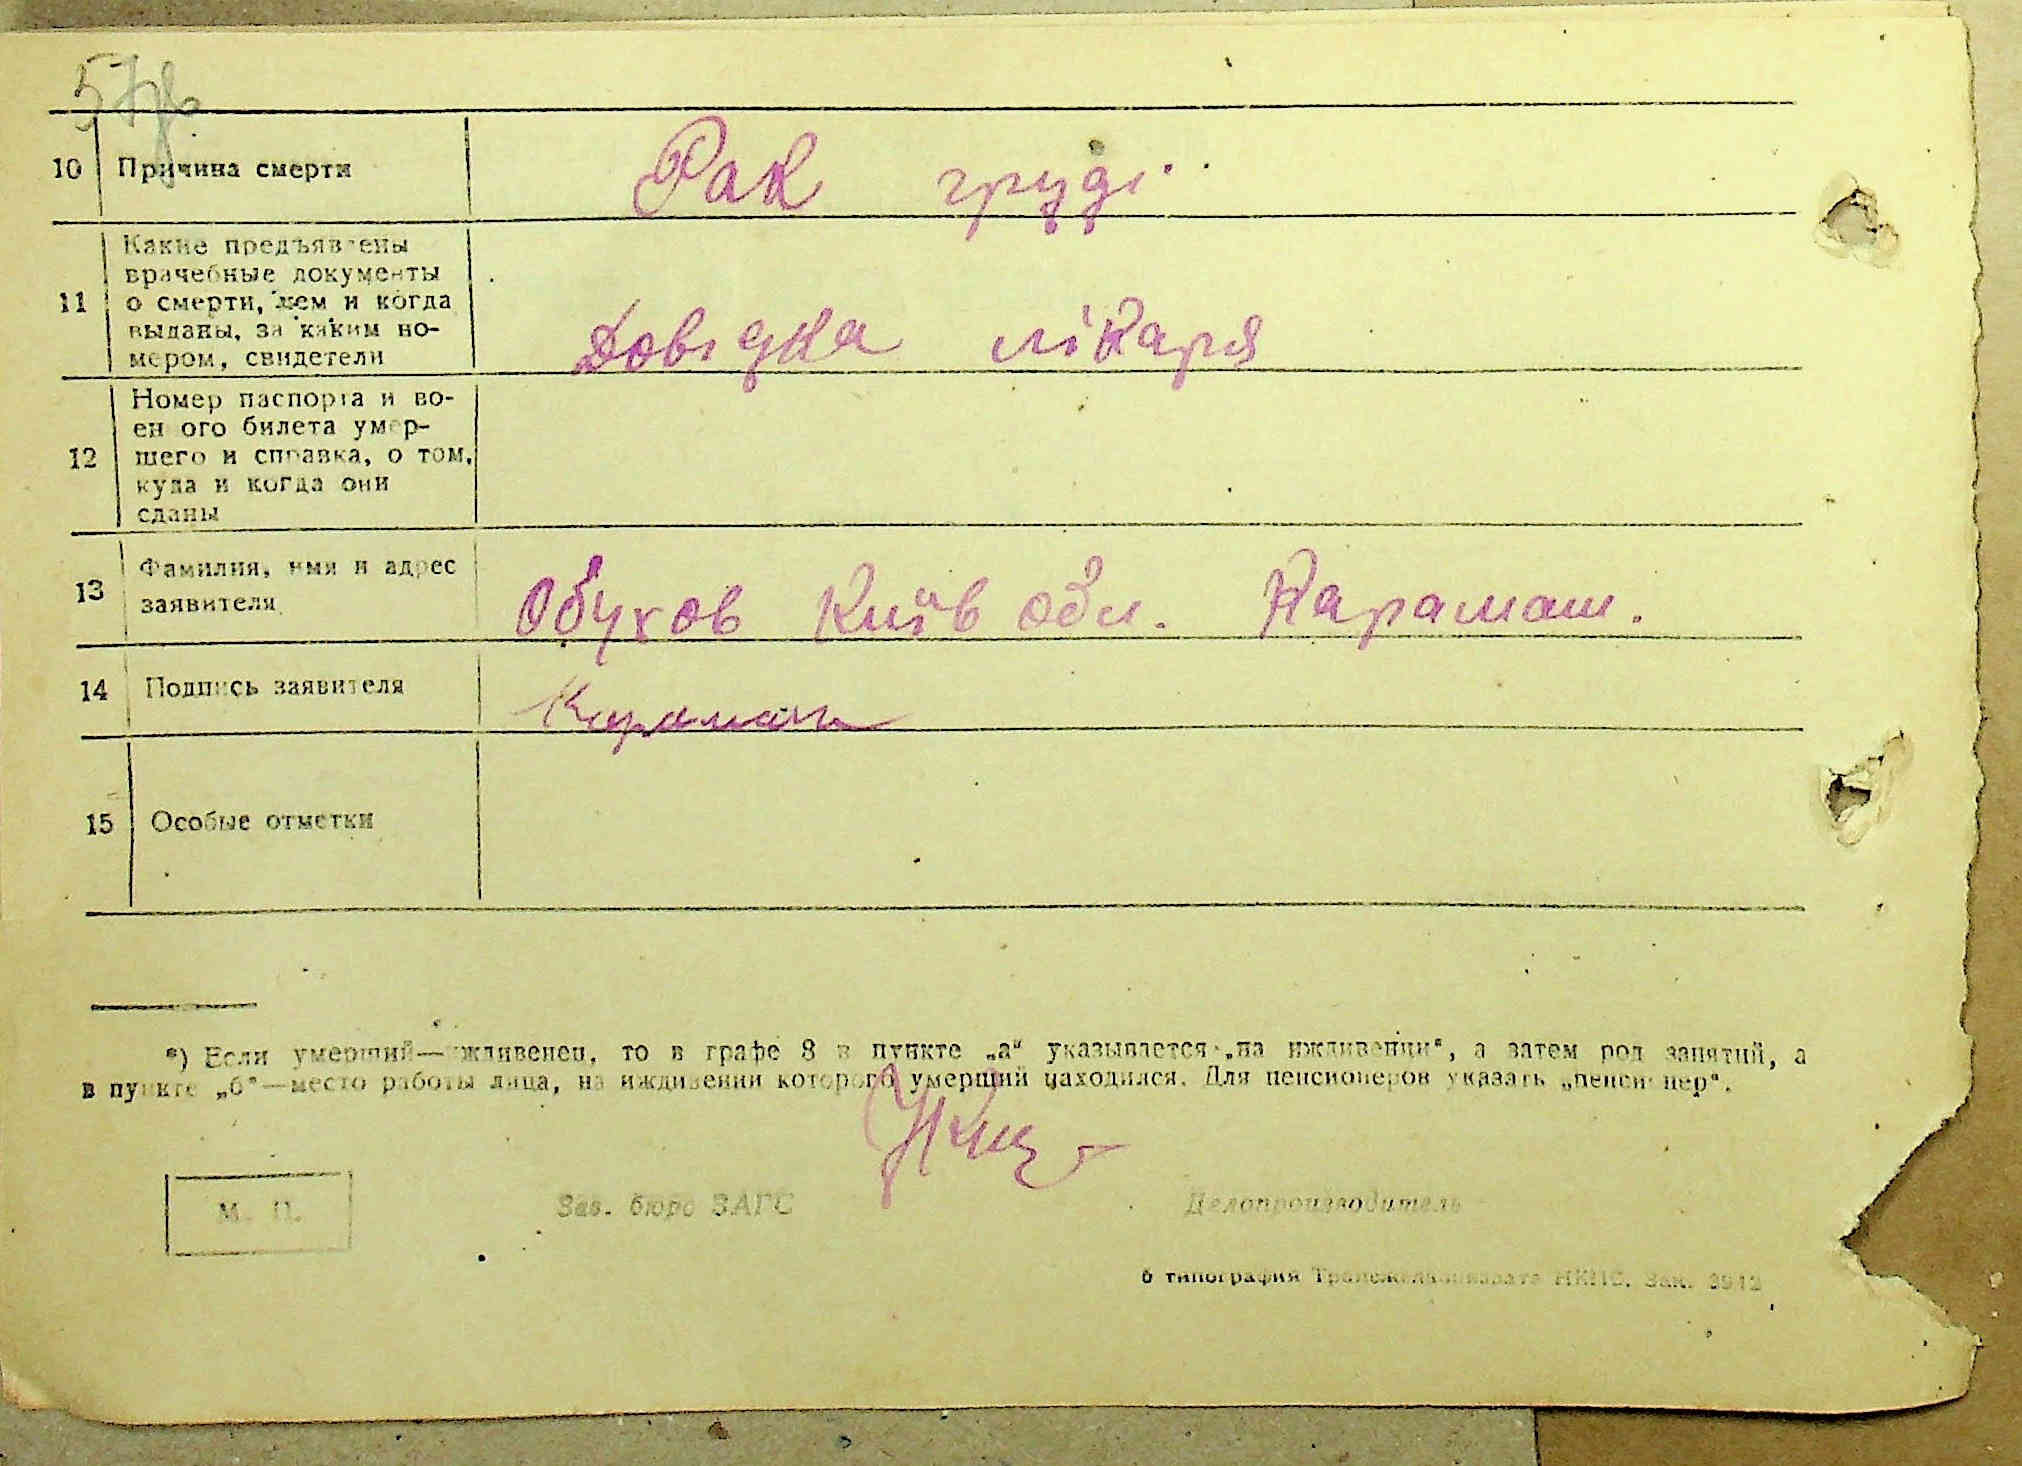 57
10 Причина смерти Рак груді
11 Какие предъявлены
врачебные документы
о смерти, кем и когда
выданы, за каким но-
мером, свидетели
Довідка лікаря
12 Номер паспорта и во-
ен ого билета умер-
шего и справка, о том,
куда и когда они
сданы
13 Фамилия, имя и адрес
заявителя
Обухов Київ обл. Карамаш.
14 Подпись заявителя Карамаш
15 Особые отметки
*) Если умерший—иждивенец, то в графе 8 в пункте „а“ указывается „на иждивении“, а затем род занятий, а
в пункте „б“—место работы лица, на иждивении которого умерший находился. Для пенсионеров указать „пенсионер“.
М. П.
Зав. бюро ЗАГС
Делопроизводитель
6 типография Трансжелдориздата НКПС. Зак. 3912